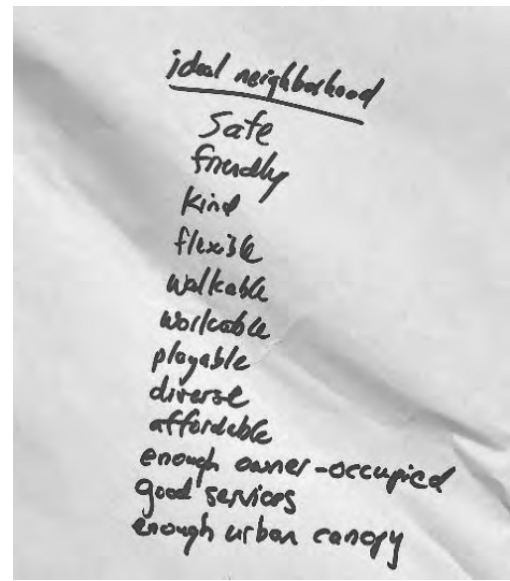 ideal neighborhood
Safe
friendly
kind
flexible
walkable
workable
playable
diverse
affordable
enough owner-occupied
good services
enough urban canopy